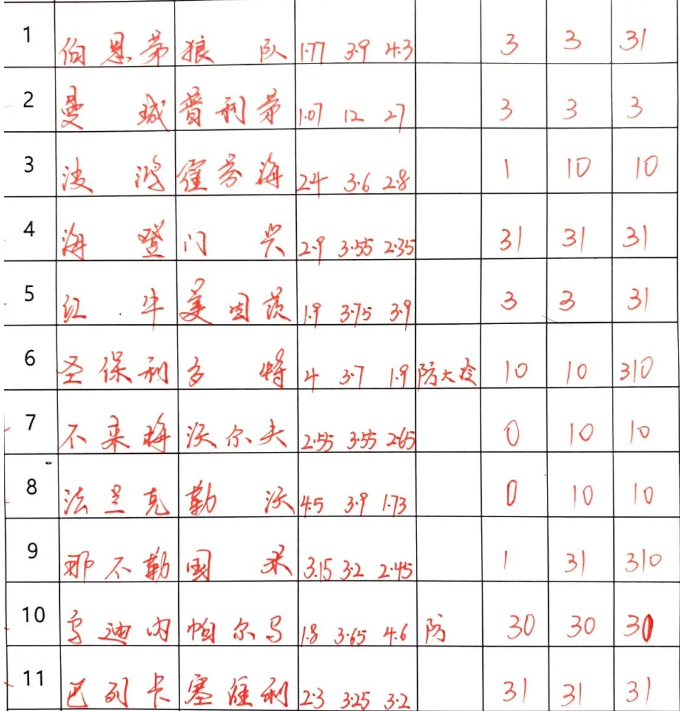 1 伯恩茅 狼队 1.77 3.9 4.3 3 3 31
2 曼城 普利茅 1.07 12 27 3 3 3
3 波鸿 霍芬海 2.4 3.6 2.8 1 10 10
4 海登 门兴 2.9 3.55 2.35 31 31 31
5 红牛 美因茨 1.9 3.75 3.9 3 3 31
6 圣保利 多特 4 3.7 1.9 防大冷 10 10 310
7 不来梅 沃尔夫 2.55 3.55 2.65 0 10 10
8 法兰克 勒沃 4.5 3.9 1.73 0 10 10
9 那不勒 国米 3.15 3.2 2.45 1 31 310
10 乌迪内 帕尔马 1.8 3.65 4.6 防 30 30 30
11 巴列卡 塞维利 2.3 3.25 3.2 31 31 31